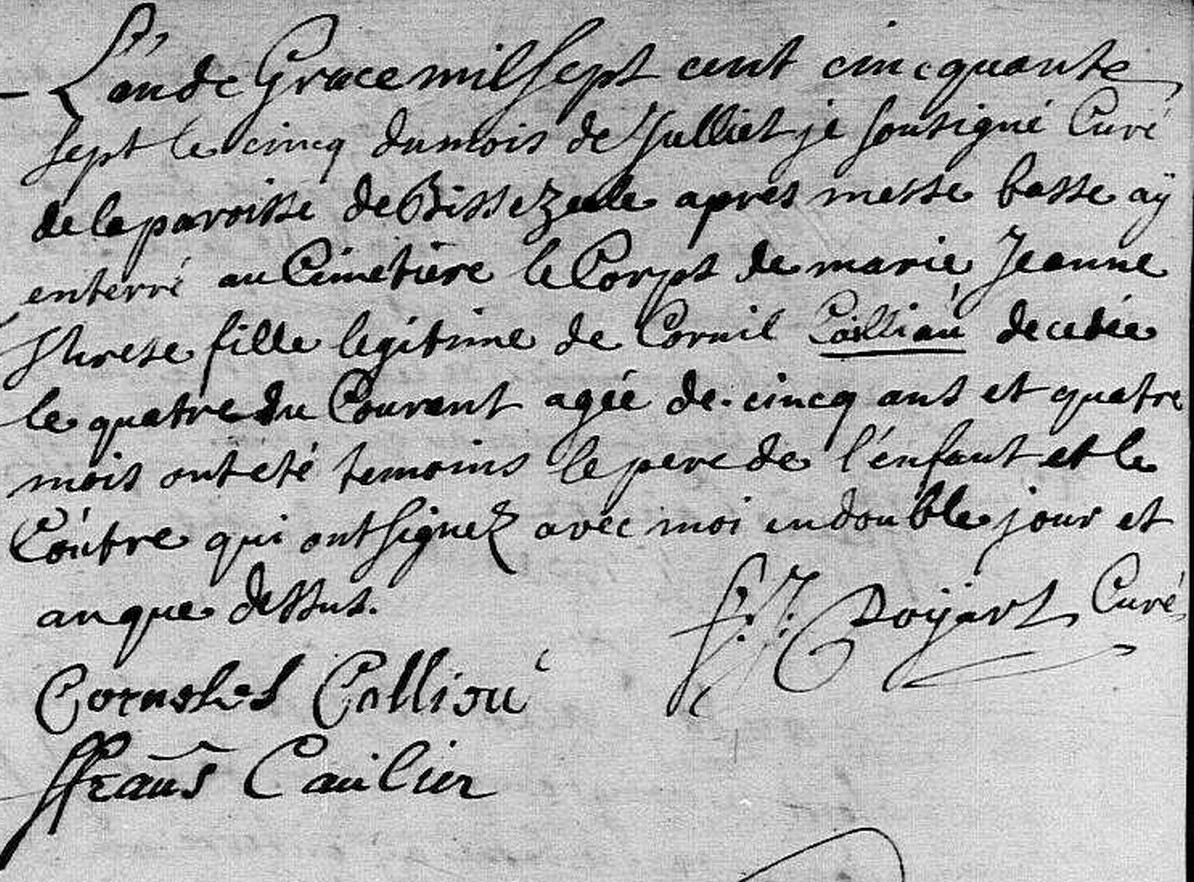 L'an de Grace mil sept cent cincquante
sept le cincq du mois de Julliet je sousigné Curé
de la paroisse de Bissezeele apres messe basse aÿ
enterré au Cimetiere le Corps de marie Jeanne
threse fille legitime de Cornil Calliau decedée
le quatre du Courant agée de cincq ans et quatre
mois ont eté temoins le pere de l'enfant et le
Coûtre qui ont signez avec moi en double jour et
an que dessus.
f. J. Doÿart Curé
Corneles Colliou
ffrans Caulier